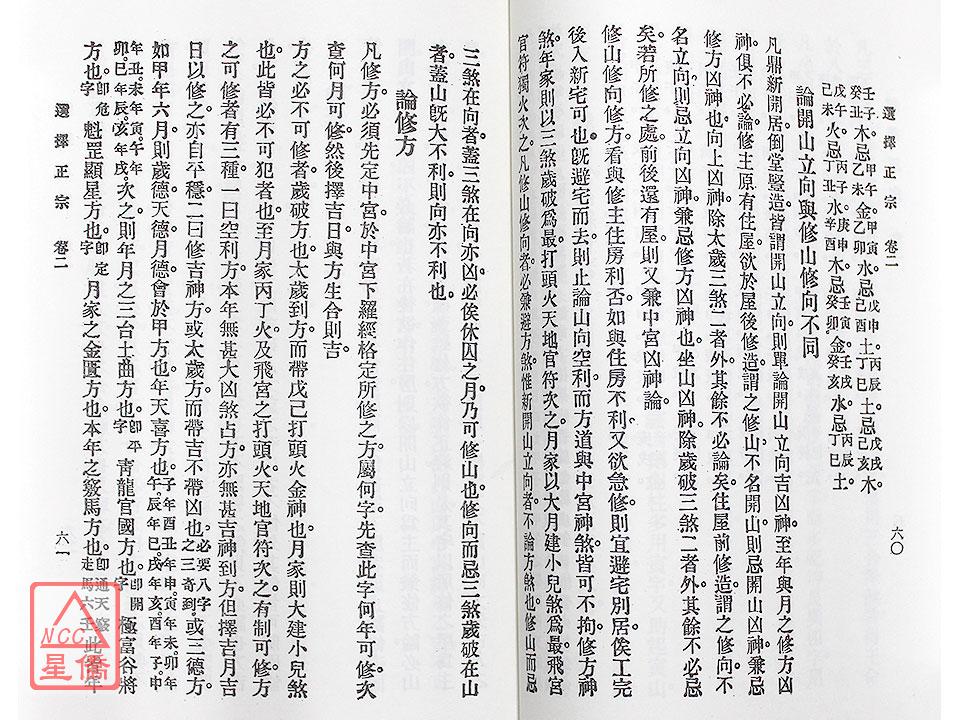 選擇正宗 卷二 六〇
壬子。木忌甲午。甲寅。水忌戊申。丙辰。土忌戊戌。木。
癸丑。木忌乙未。金乙卯。水忌己酉。土丁巳。土忌己亥。木。
戊午。火忌丙子。水庚申。木忌壬寅。金壬戌。水忌丙辰。土。
己未。火忌丁丑。水辛酉。木忌癸卯。金癸亥。水忌丁巳。土。
論開山立向與修山修向不同
凡鼎新開居倒堂豎造皆謂開山立向則單論開山立向吉凶神至年與月之修方凶
神俱不必論修主原有住屋欲於屋後修造謂之修山不名開山則忌開山凶神兼忌
修方凶神也向上凶神除太歲三煞二者外其餘不必論矣住屋前修造謂之修向不
名立向則忌立向凶神兼忌修方凶神也坐山凶神除歲破三煞二者外其餘不必忌
矣若所修之處前後還有屋則又兼中宮凶神論
修山修向修方看與修主住房利否如與住房不利又欲急修則宜避宅別居俟工完
後入新宅可也既避宅而去則止論山向空利而方道與中宮神煞皆可不拘修方神
煞年家則以三煞歲破爲最打頭火天地官符次之月家以大月建小兒煞爲最飛宮
官符獨火次之凡修山修向者必兼避方煞惟新開山立向者不論方煞也修山而忌
三煞在向者蓋三煞在向亦凶必俟休囚之月乃可修山也修向而忌三煞歲破在山
者蓋山既大不利則向亦不利也
論修方
凡修方必須先定中宮於中宮下羅經格定所修之方屬何字先查此字何年可修次
查何月可修然後擇吉日與方生合則吉
方之必不可修者歲破方也太歲到方而帶戊己打頭火金神也月家則大建小兒煞
也此皆必不可犯者也至月家丙丁火及飛宮之打頭火天地官符次之有制可修方
之可修者有三種一曰空利方本年無甚大凶煞占方亦無甚吉神到方但擇吉月吉
日以修之亦自平穩二曰修吉神方或太歲方而帶吉不帶凶也必要八字之三奇到或三德方
如甲年六月則歲德天德月德會於甲方也年天喜方也子年酉丑年申。寅年未。卯年午。辰年巳。
年丑。未年寅。午年卯。巳年辰。亥年戌。次之則年月之三台土曲方也即平字青龍官國方也即開字極富谷將
方也即危字魁罡顯星方也即定字月家之金匱方也本年之竅馬方也即通天竅走馬六壬此看年
選擇正宗 卷二 六一
NCC
星僑